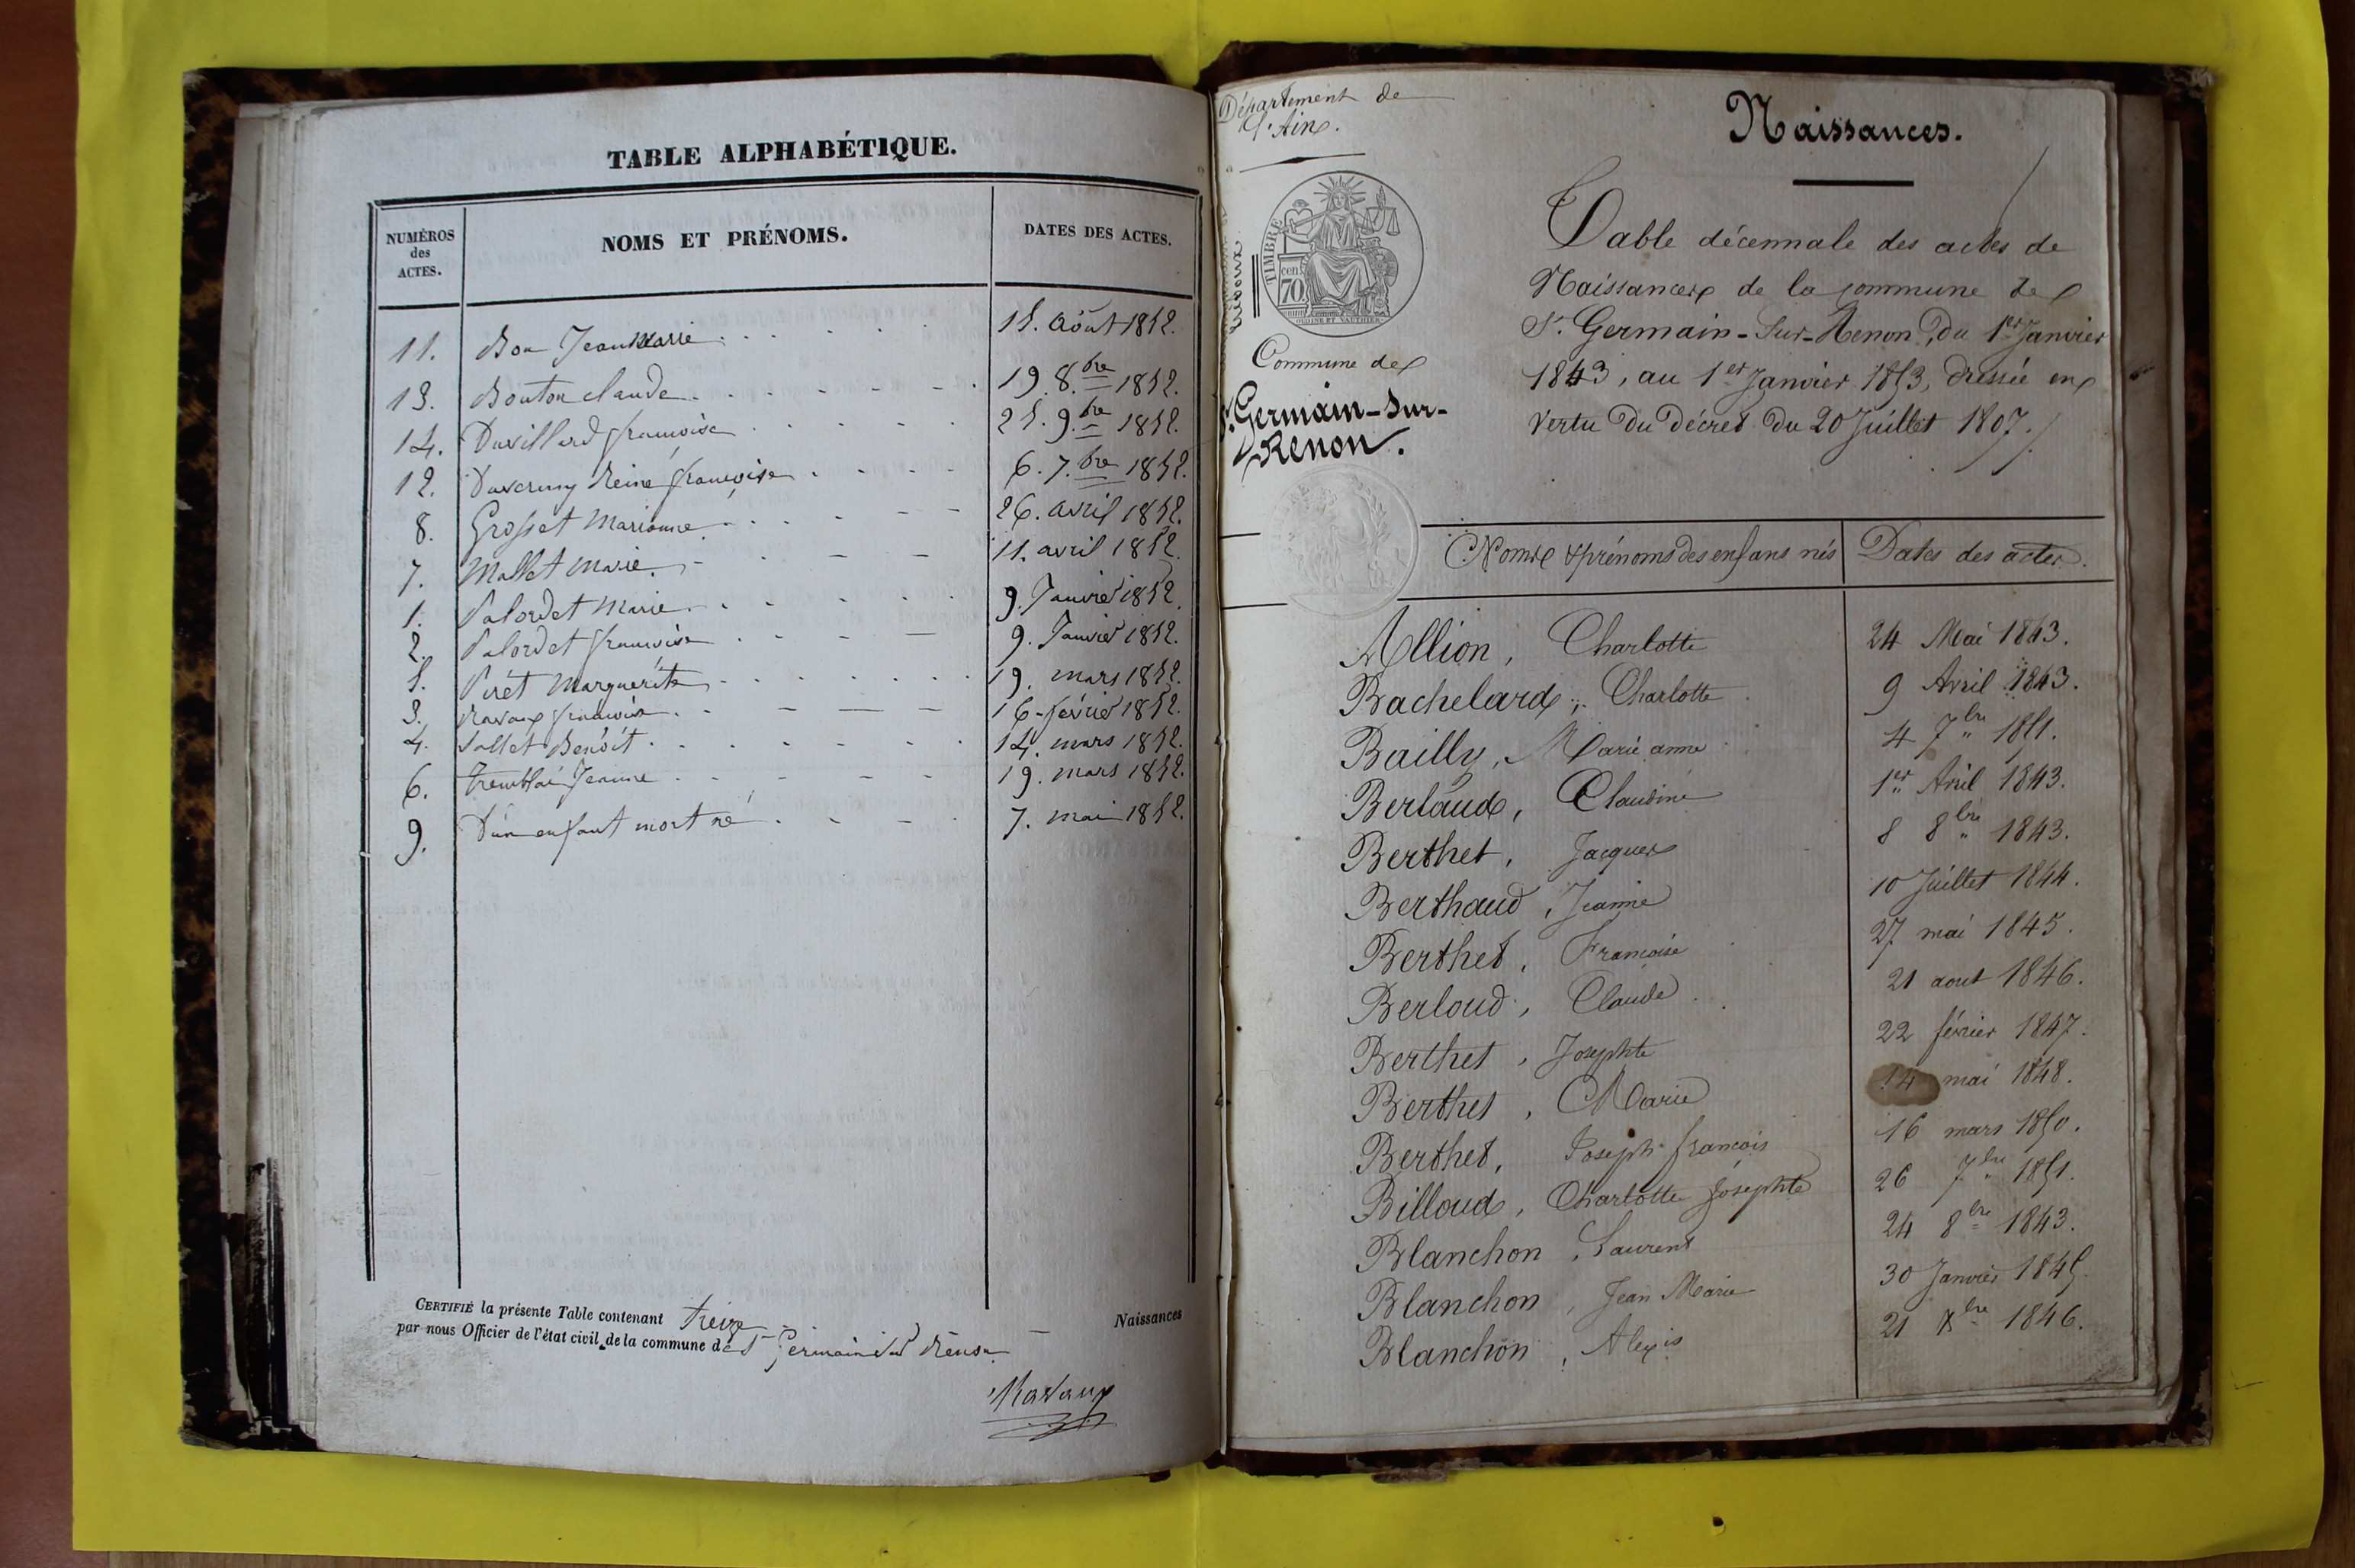 TABLE ALPHABÉTIQUE.
NUMÉROS des ACTES. NOMS ET PRÉNOMS. DATES DES ACTES.
11. Bon Jean Marie 15. Août 1852.
13. Bouton claude 19. 8.bre 1852.
14. Duvillard françoise 25. 9.bre 1852.
12. Reine françoise 6. 7.bre 1852.
8. Grosset Marianne 26. avril 1852.
7. Mallet Marie 11. avril 1852.
1. Palordet Marie 9. Janvier 1852.
2. Palordet françoise 9. Janvier 1852.
5. Péret Marguerite 19. mars 1852.
3. Ravaux 16 février 1852.
4. Sallet Benoît 14. mars 1852.
6. Jeanne 19. mars 1852.
9. D'un enfant mort né 7. mai 1852.
CERTIFIÉ la présente Table contenant treize Naissances
par nous Officier de l'état civil de la commune de St Germain Sur Renon
Ravaux
Département de
l'Ain.
TIMBRE
cen 70
Commune de
St Germain-Sur-
Renon.
Naissances.
Table décennale des actes de
Naissances de la commune de
St Germain-Sur-Renon, du 1er Janvier
1843, au 1er Janvier 1853, dressée en
vertu du décret du 20 Juillet 1807.
Noms & prénoms des enfans nés Dates des actes.
Allion, Charlotte 24 Mai 1843.
Bachelard, Charlotte 9 Avril 1843.
Bailly, Marie anne 4 7bre 1851.
Berlaud, Claudine 1er Avril 1843.
Berthet, Jacques 8 8bre 1843.
Berthaud, Jeanne 10 Juillet 1844.
Berthet, Françoise 27 mai 1845.
Berloud, Claude 21 aout 1846.
Berthet, Josephte 22 février 1847.
Berthet, Marie 14 mai 1848.
Berthet, Joseph françois 16 mars 1850.
Billoud, Charlotte Josephte 26 7bre 1851.
Blanchon, Laurent 24 8bre 1843.
Blanchon, Jean Marie 30 Janvier 1845.
Blanchon, Alexis 21 Xbre 1846.